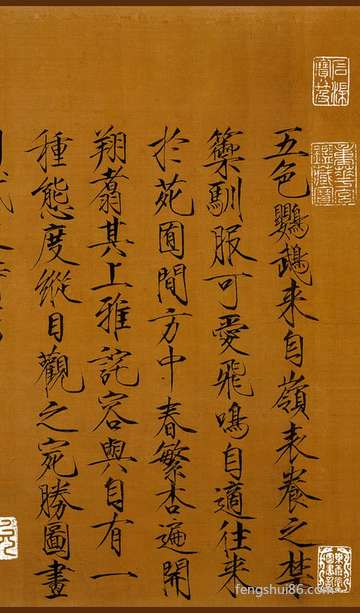 五色鸚鵡来自嶺表養之禁
籞馴服可愛飛鳴自適往来
於苑囿間方中春繁杏遍開
翔翥其上雅詫容與自有一
種態度縱目觀之宛勝圖畫
fengshui86.com